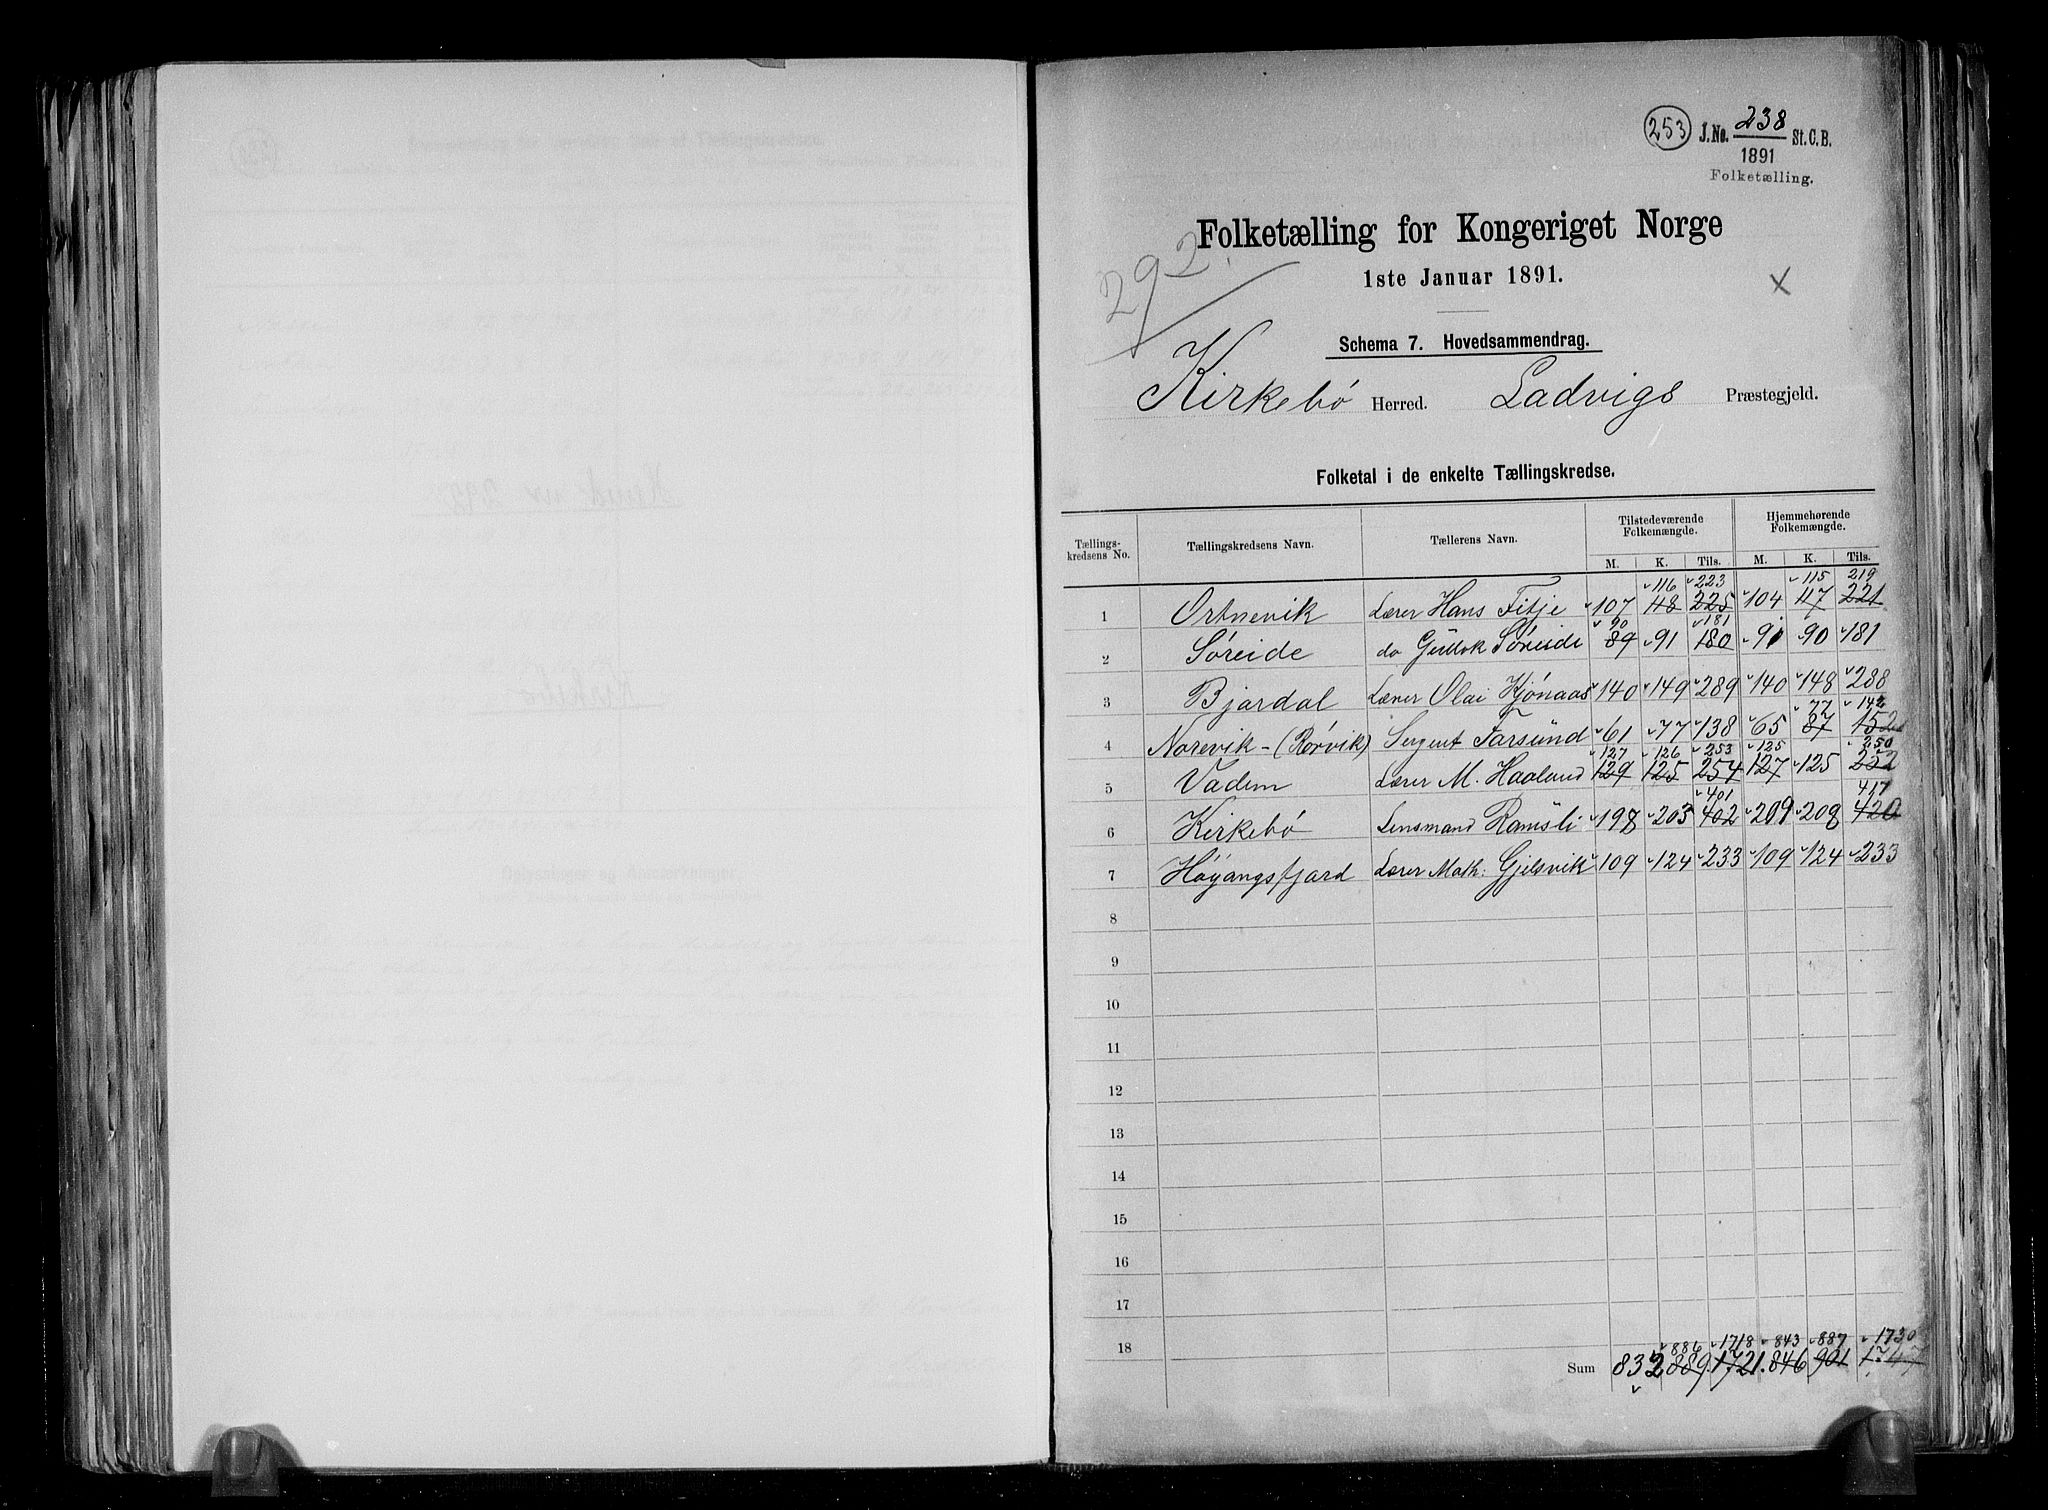 253 J. No. 238 St. C. B.
1891
Folketælling.
Folketælling for Kongeriget Norge
292.
1ste Januar 1891.
x
Schema 7. Hovedsammendrag.
Kirkebø Herred. Ladvigs Præstegjeld.
Folketal i de enkelte Tællingskredse.
Tællings-kredsens No. Tællingskredsens Navn. Tællerens Navn. Tilstedeværende Folkemængde. Hjemmehørende Folkemængde.
M. K. Tils. M. K. Tils.
116 223 115 219
1 Ortnevik Lærer Hans Fitje 107 118 225 104 117 221
90 181
2 Søreide do Gullok Søreide 89 91 180 91 90 181
3 Bjordal Lærer Olai Kjønaas 140 149 289 140 148 288
77 142
4 Norevik - (Rørvik) Sergent Farsund 61 77 138 65 87 152
127 126 253 125 250
5 Vadem Lærer M. Haaland 129 125 254 127 125 252
401 417
6 Kirkebø Lensmand Ramsli 198 203 402 209 208 420
7 Høyangsfjord Lærer Math: Gjelsvik 109 124 233 109 124 233
8
9
10
11
12
13
14
15
16
17
18
886 1718 843 887 1730
Sum 832 889 1721 846 901 1747